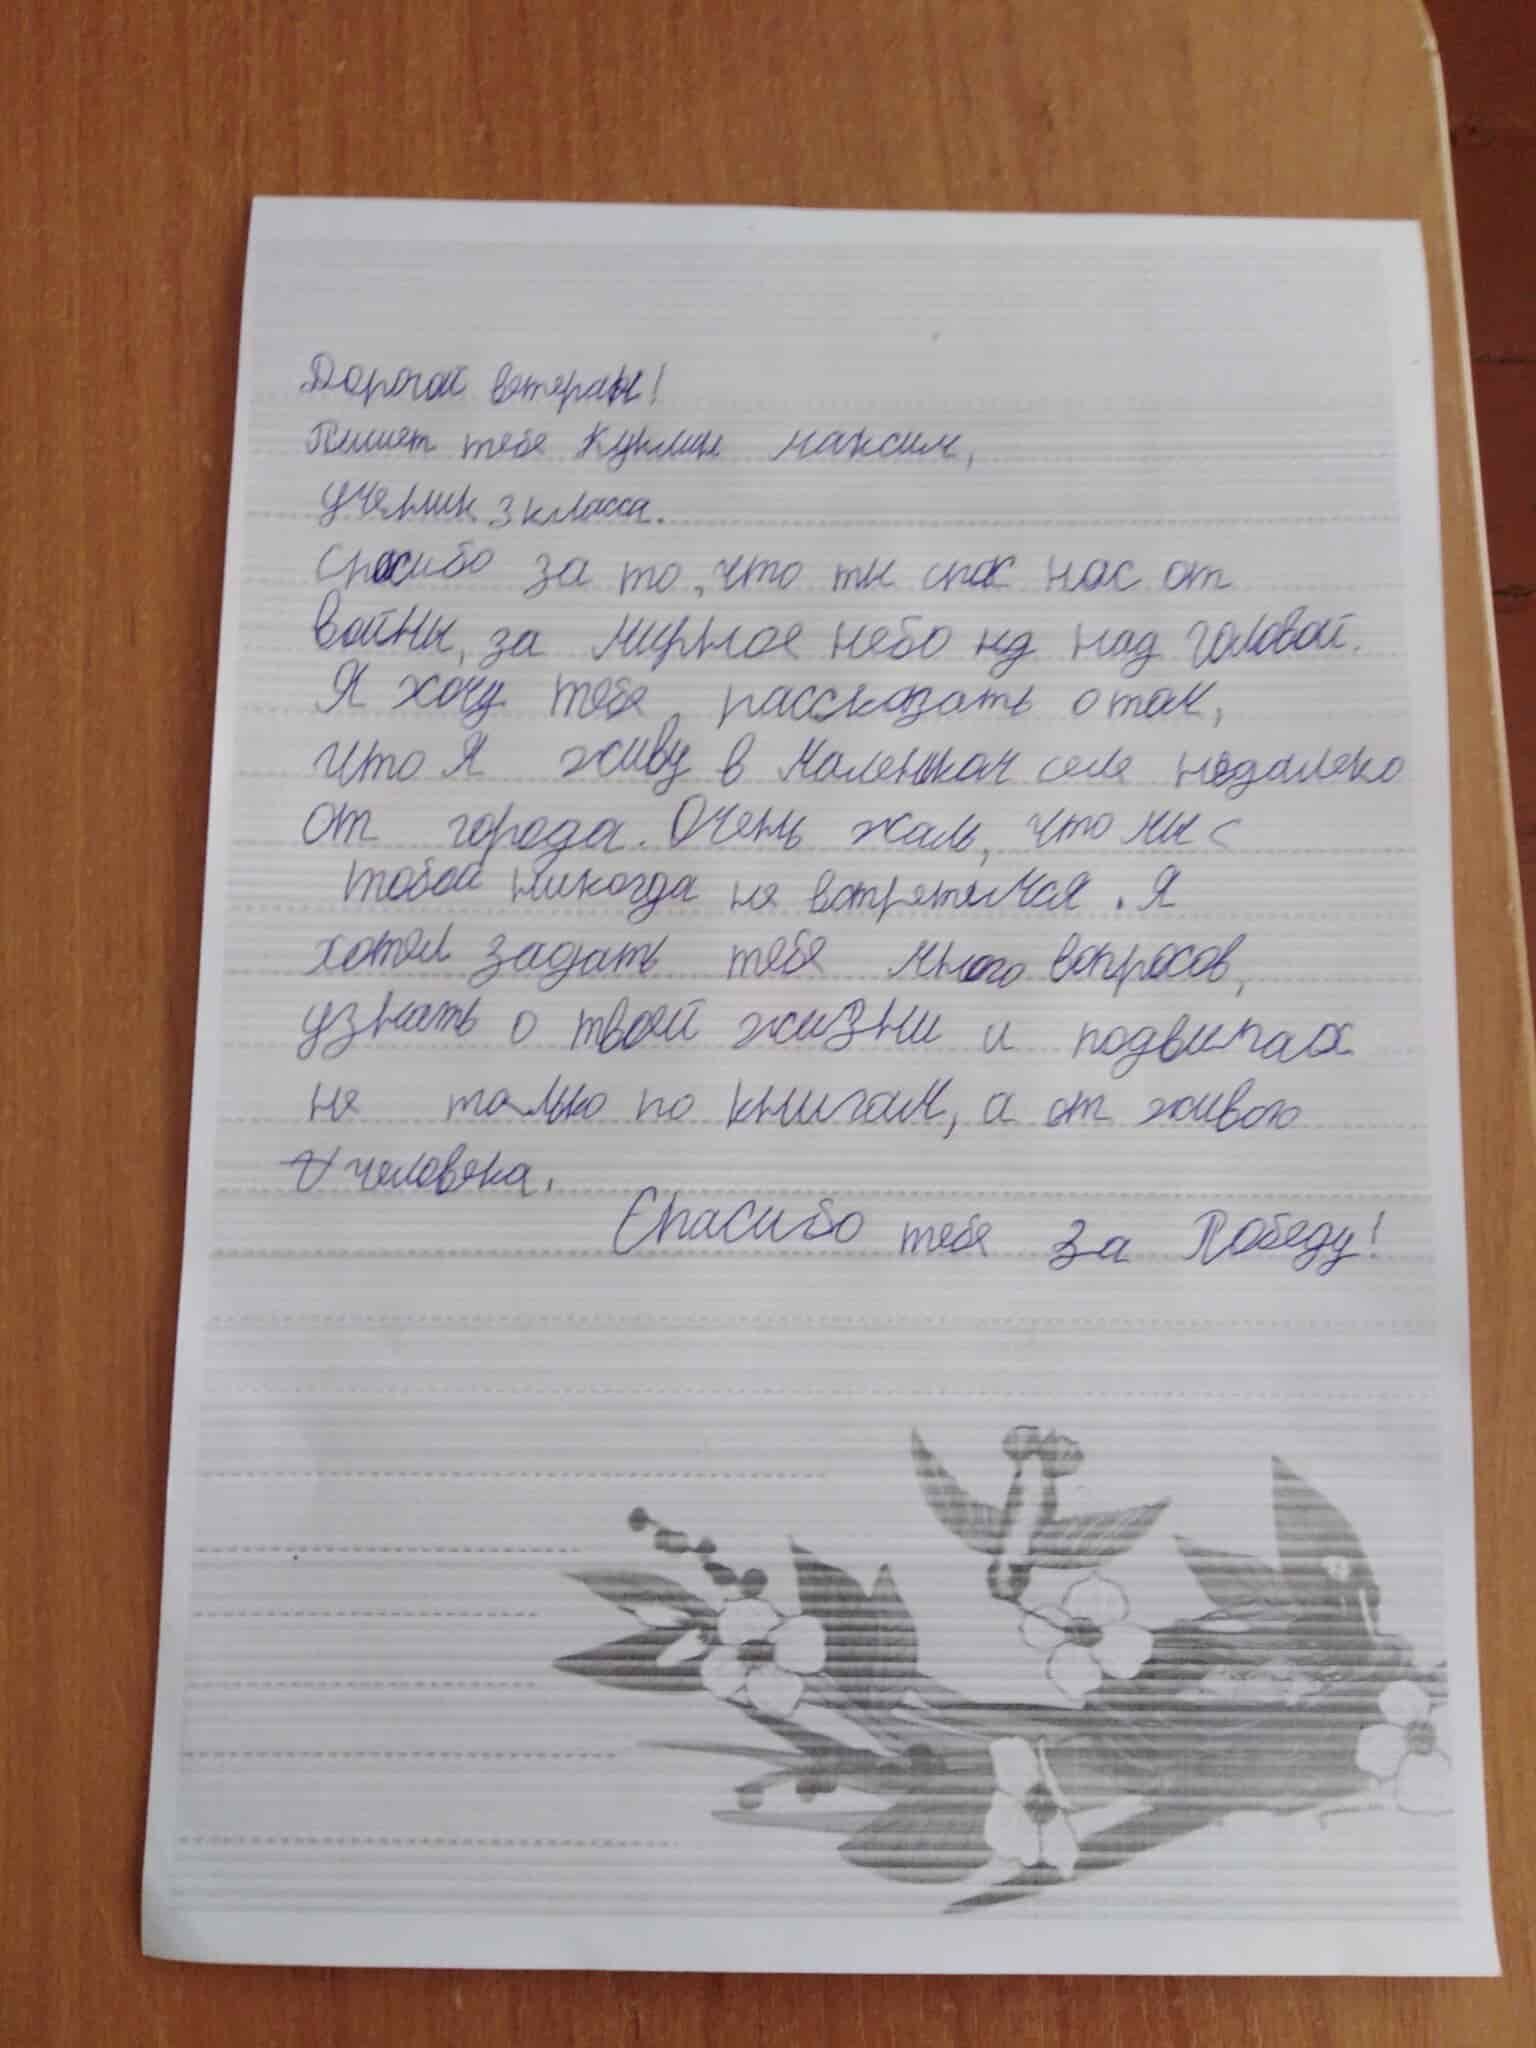 Дорогой ветеран!
Пишет тебе Куклин максим,
ученик 3 класса.
Спасибо за то, что ты спас нас от
войны, за мирное небо нд над головой.
Я хочу тебе рассказать о том,
что я живу в маленьком селе недалеко
от города. Очень жаль, что мы с
тобой никогда не встретимся. Я
хотел задать тебе много вопросов,
узнать о твоей жизни и подвигах
не только по книгам, а от живого
человека.
Спасибо тебе за Победу!